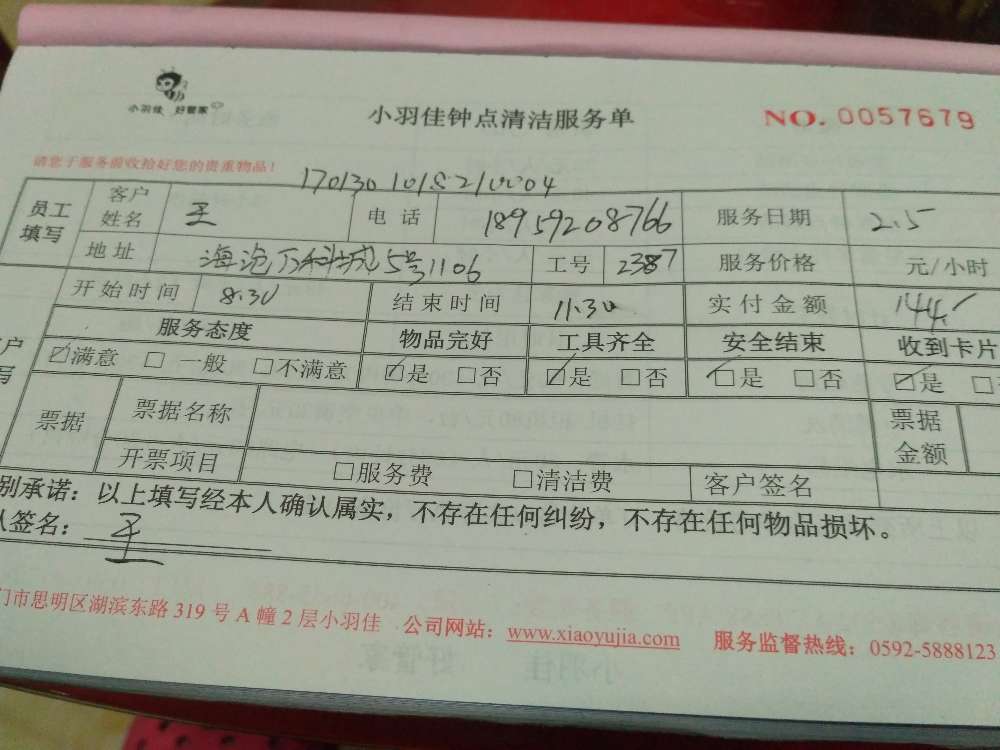 小羽佳 好管家
小羽佳钟点清洁服务单
NO. 0057679
请您于服务前收拾好您的贵重物品！
170130101821
员工填写 客户姓名 王 电话 18959208766 服务日期 2.5
地址 海沧万科城5号1106 工号 2387 服务价格 元/小时
开始时间 8:30 结束时间 11:30 实付金额 144
服务态度 物品完好 工具齐全 安全结束 收到卡片
☑满意 □ 一般 □不满意 ☑是 □否 ☑是 □否 ☑是 □否 ☑是
票据 票据名称 票据金额
开票项目 □服务费 □清洁费 客户签名
别承诺：以上填写经本人确认属实，不存在任何纠纷，不存在任何物品损坏。
签名： 王
门市思明区湖滨东路 319 号 A 幢 2 层小羽佳 公司网站：www.xiaoyujia.com 服务监督热线：0592-5888123